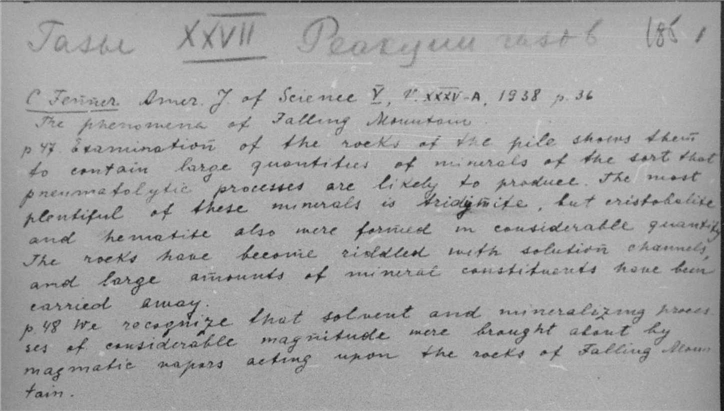 Газы XXVII Реакции газов 185
C. Fenner. Amer. J. of Science V, V. XXXV-A, 1938 p. 36
The phenomena of Falling Mountain
p 47. Examination of the rocks of the pile shows them
to contain large quantities of minerals of the sort that
pneumatolytic processes are likely to produce. The most
plentiful of these minerals is tridymite, but cristobalite
and hematite also were formed in considerable quantity.
The rocks have become riddled with solution channels,
and large amounts of mineral constituents have been
carried away.
p. 48 We recognize that solvent and mineralizing proces
ses of considerable magnitude were brought about by
magmatic vapors acting upon the rocks of Falling Moun
tain.